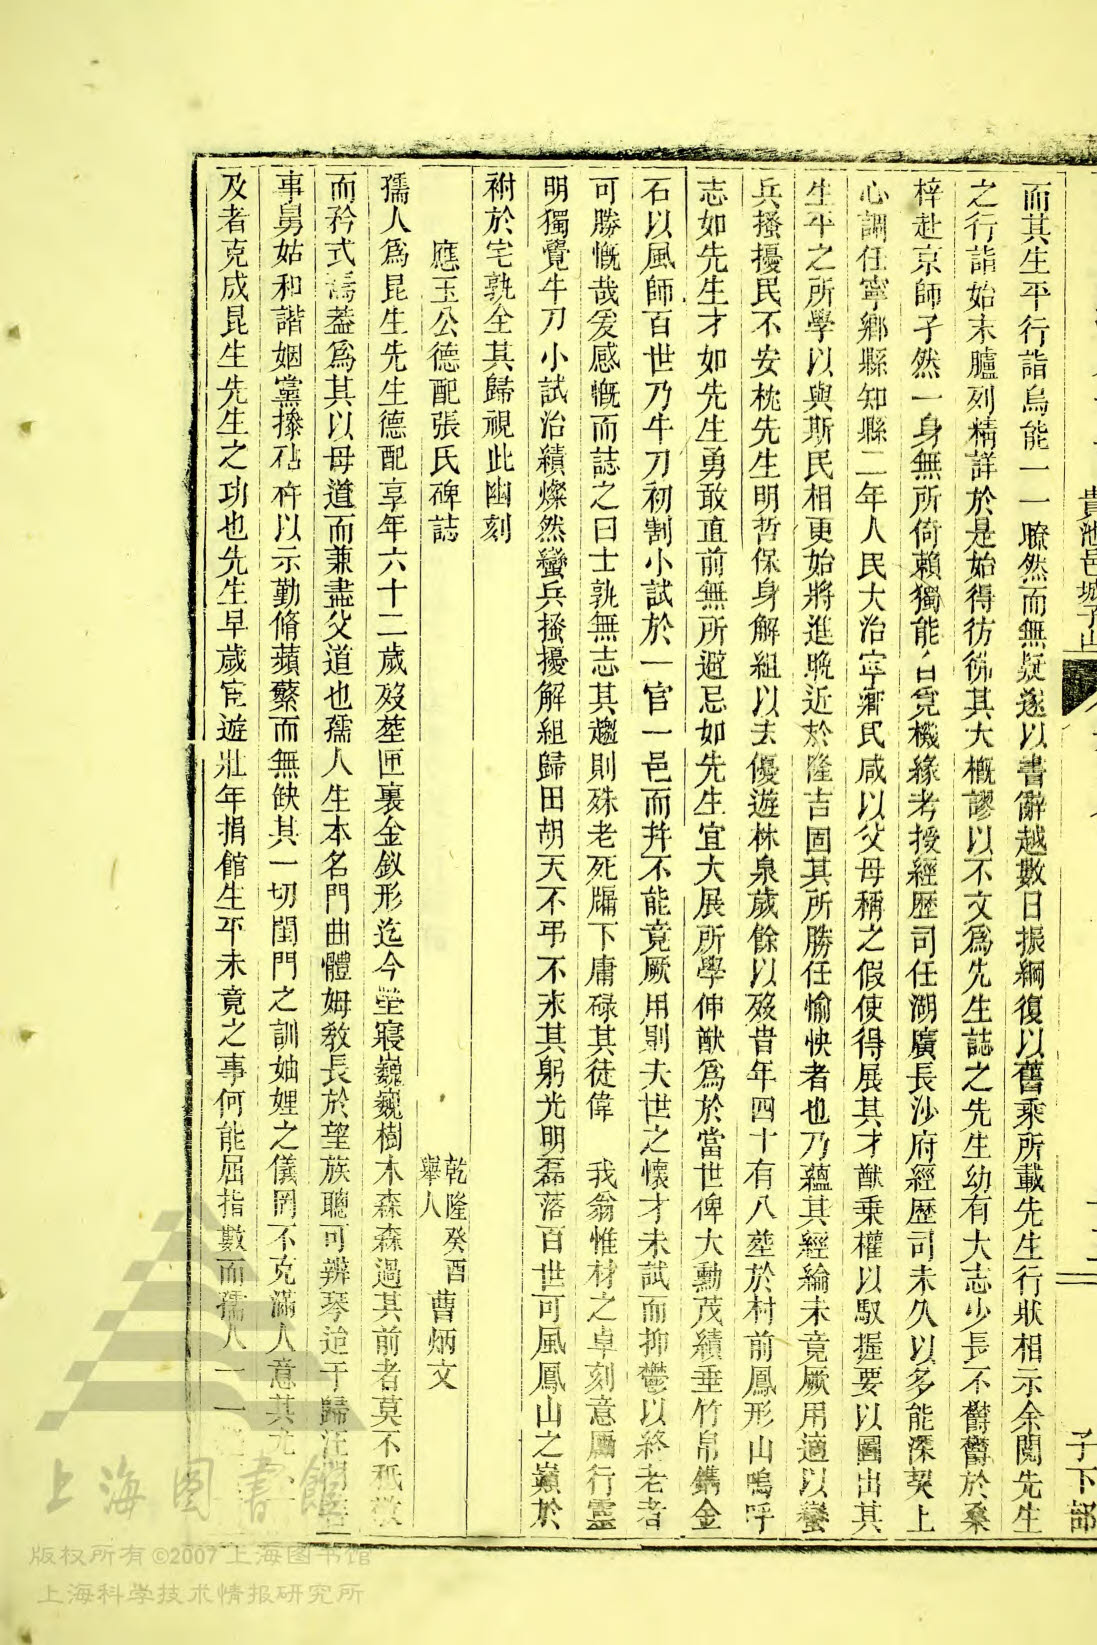 貴池邑城子山
子下部
而其生平行詣烏能一一瞭然而無疑遂以書辭越數日振綱復以舊乘所載先生行狀相示余閱先生
之行詣始末臚列精詳於是始得彷彿其大槪謬以不文爲先生誌之先生幼有大志少長不欝欝於桑
梓赴京師孑然一身無所倚賴獨能自覓機緣考授經歷司任湖廣長沙府經歷司未久以多能深契上
心調任寧鄉縣知縣二年人民大治寧鄕民咸以父母稱之假使得展其才猷乘權以馭握要以圖出其
生平之所學以與斯民相更始將進晩近於隆吉固其所勝任愉快者也乃蘊其經綸未竟厥用適以蠻
兵搔擾民不安枕先生明哲保身解組以去優遊林泉歲餘以歿昔年四十有八塟於村前鳳形山嗚呼
志如先生才如先生勇敢直前無所避忌如先生宜大展所學伸猷爲於當世俾大勳茂績垂竹帛鐫金
石以風師百世乃牛刀初割小試於一官一邑而幷不能竟厥用則夫世之懷才未試而抑鬱以終老者
可勝慨哉爰感慨而誌之曰士孰無志其趨則殊老死牖下庸碌其徒偉 我翁惟材之卓刻意勵行靈
明獨覺牛刀小試治績燦然蠻兵搔擾解組歸田胡天不弔不永其躬光明磊落百世可風鳳山之巔於
祔於宅孰全其歸視此幽刻
應玉公德配張氏碑誌
乾隆癸酉
舉人
曹炳文
孺人爲昆生先生德配享年六十二歲歿塟匣裏金釵形迄今塋寢巍巍樹木森森過其前者莫不祗敬
而矜式焉蓋爲其以母道而兼盡父道也孺人生本名門曲體姆敎長於望族聰可辨琴迨于歸汪
事舅姑和諧姻黨搽砧杵以示勤脩蘋蘩而無缺其一切閨門之訓妯娌之儀罔不克滿人意其
及者克成昆生先生之功也先生早歲宦遊壯年捐館生平未竟之事何能屈指數而孺人一一
上海图書館
版权所有©2007上海图书馆
上海科学技术情报研究所